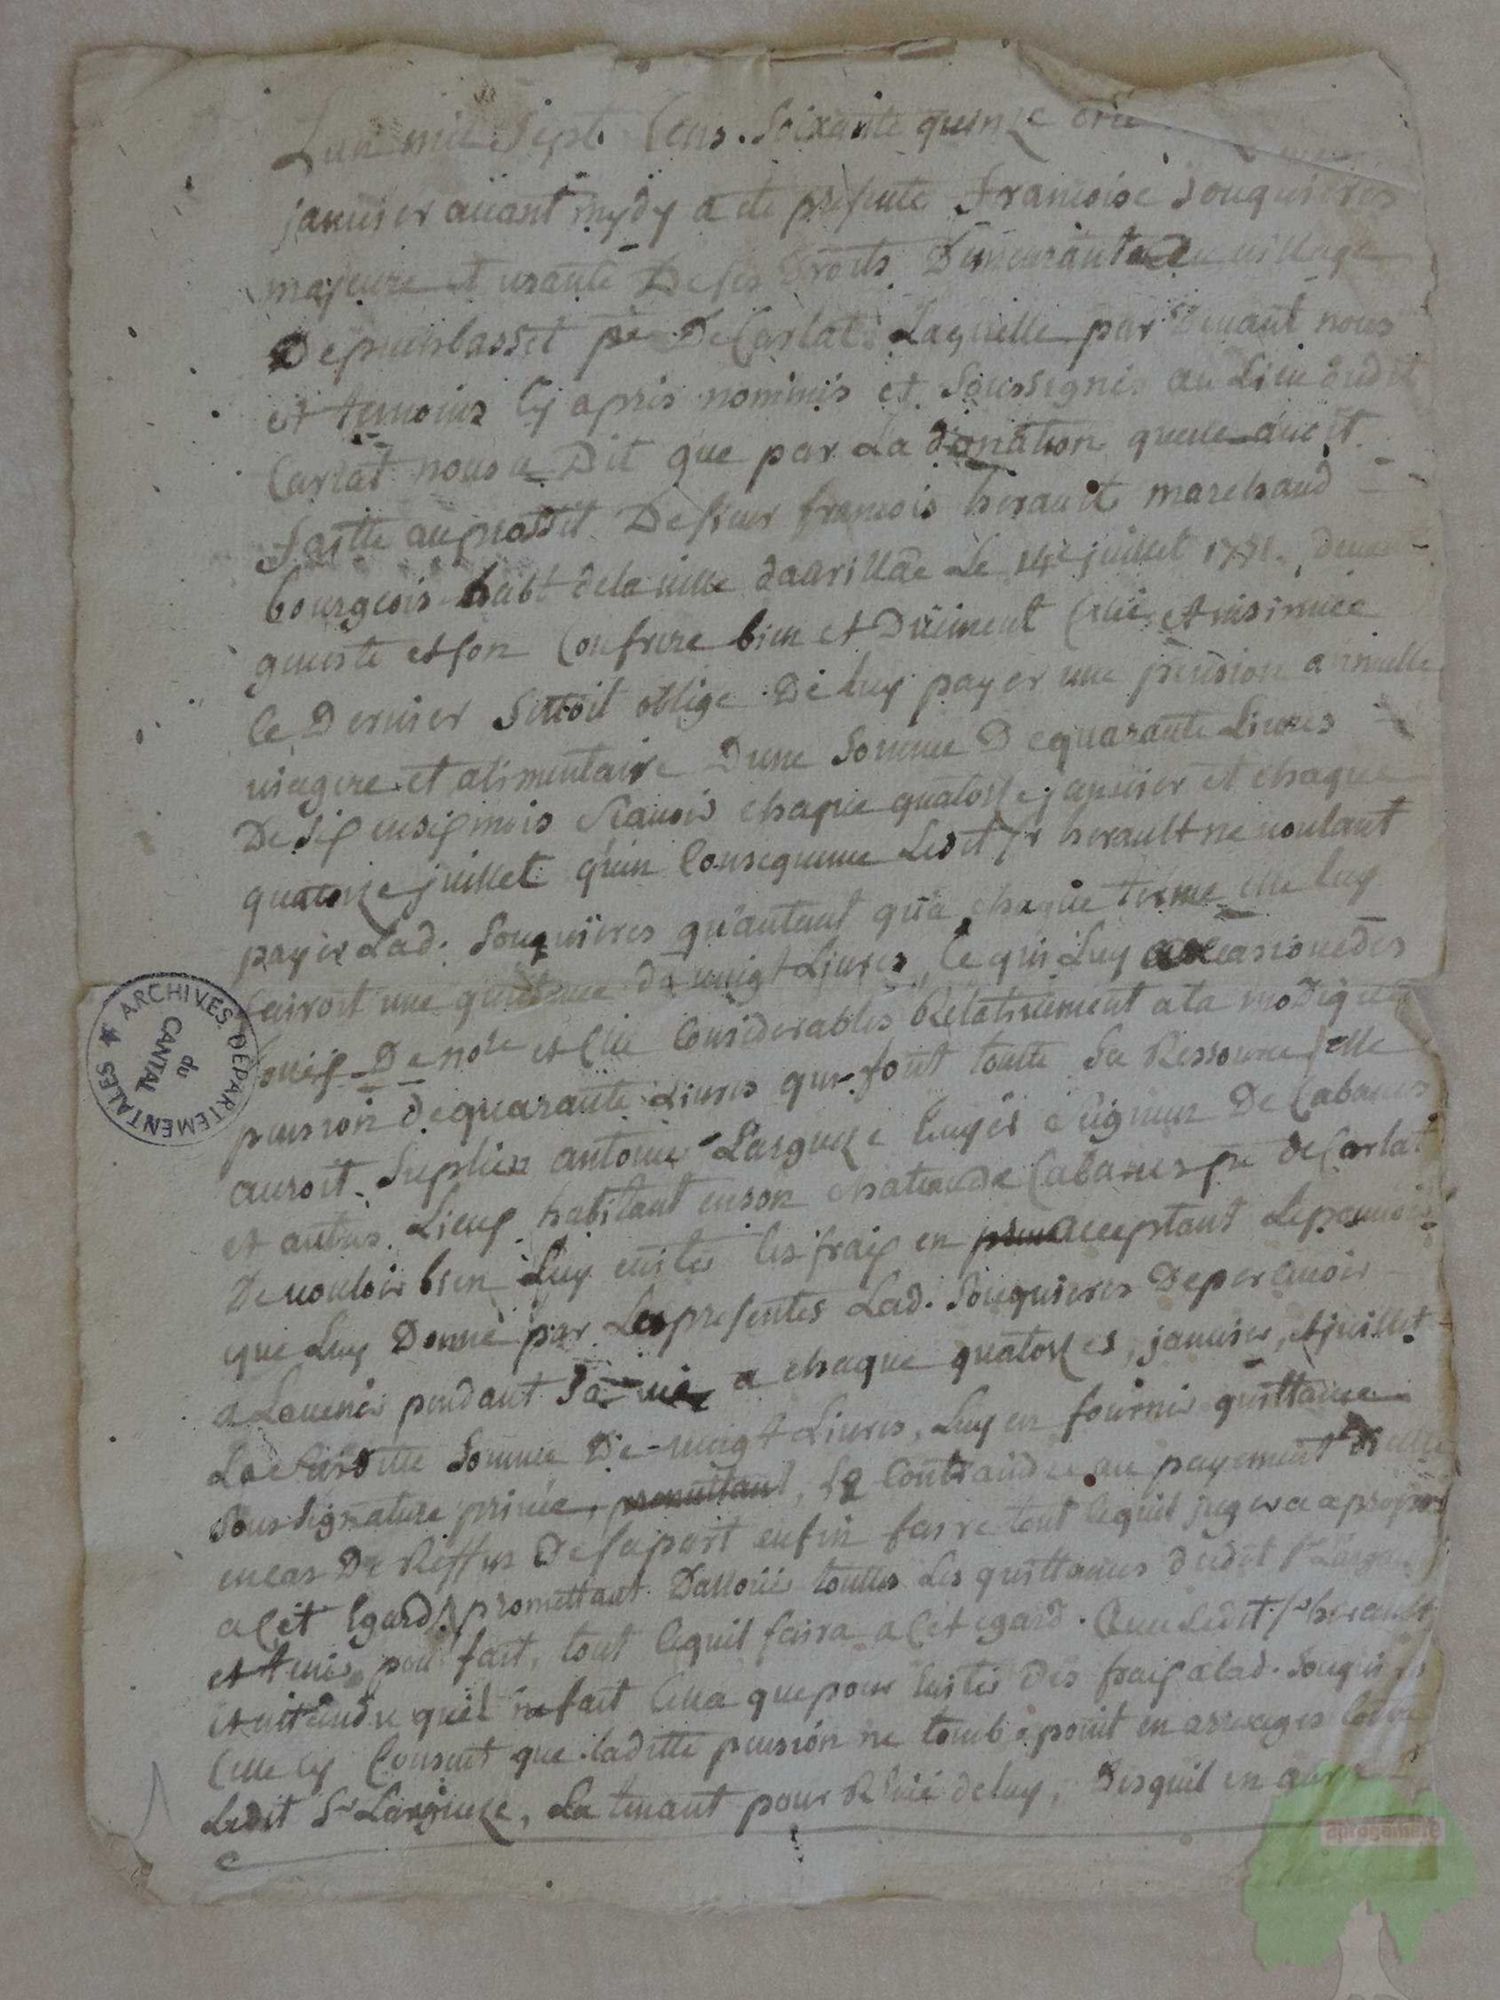 Lan mil Sept Cens Soixante quinze
januier auant mydy a ete presente francoise Souquieres
majeure et usante De ses Droits Demeurante du uillage
De puechlasset pse De Carlat Laquelle par Deuant nous
et temoins Cy apris nommés et Soussignés au Lieu dudit
Carlat nous a Dit que par La donation quelle auoit
faitte au proffit De sieur francois herault marchand
bourgeois habt de la uille daurillac Le 14e juillet 1771. deuant
et son Confrere bien et Düement Cteé et insinuée
Ce Dernier Settoit oblige De luy payer une pension annuelle
uiagere et alimentaire Dune Somme De quarante Liures
De six en six mois Scauoir chaque quatorze januier et chaque
quatorze juillet quen Consequence Ledit Sr herault ne uoulant
payer Lad. Souquieres qu'autant qu'a chaque terme elle luy
fairoit une quittance de uingt Liures, Ce qui Luy occasionne des
De nore et Cteé Considerables Relatiuement a la modique
pension de quarante Liures qui font toutte Sa Ressource, elle
auroit Suplié antoine Largueze seigneur De Cabanes
et autres Lieux habitant en son chateau de Cabanes pse de Carlat
De uouloir bien Luy euiter les fraix en acceptant Le pouuoir
que Luy Donne par Les presentes Lad. Souquieres De perceuoir
a Lauenir pendant Sa uie a chaque quatorzes, januier, et juillet
La Susditte Somme De uingt Liures, Luy en fournir quittance
Sous Signature priuée, promettant, Le Contraindre au payement dicelle
en cas De Reffus De sa part enfin faire tout Ce quil jugera a propos
a Cet Egard, promettant Dauouer touttes Les quittances dudit Sr
et tenir pour fait, tout Ce quil faira a Cet egard. Que Ledit Sr herault
et attendu quil ne fait Cella que pour euiter Des fraix a lad. Souquieres
Celle Cy Consent que laditte pension ne tombe point en arrerages Contre
Ledit Sr Largueze, La tenant pour Reçeu de luy, Desquil en aura
ARCHIVES DEPARTEMENTALES
du
CANTAL
aprogemere